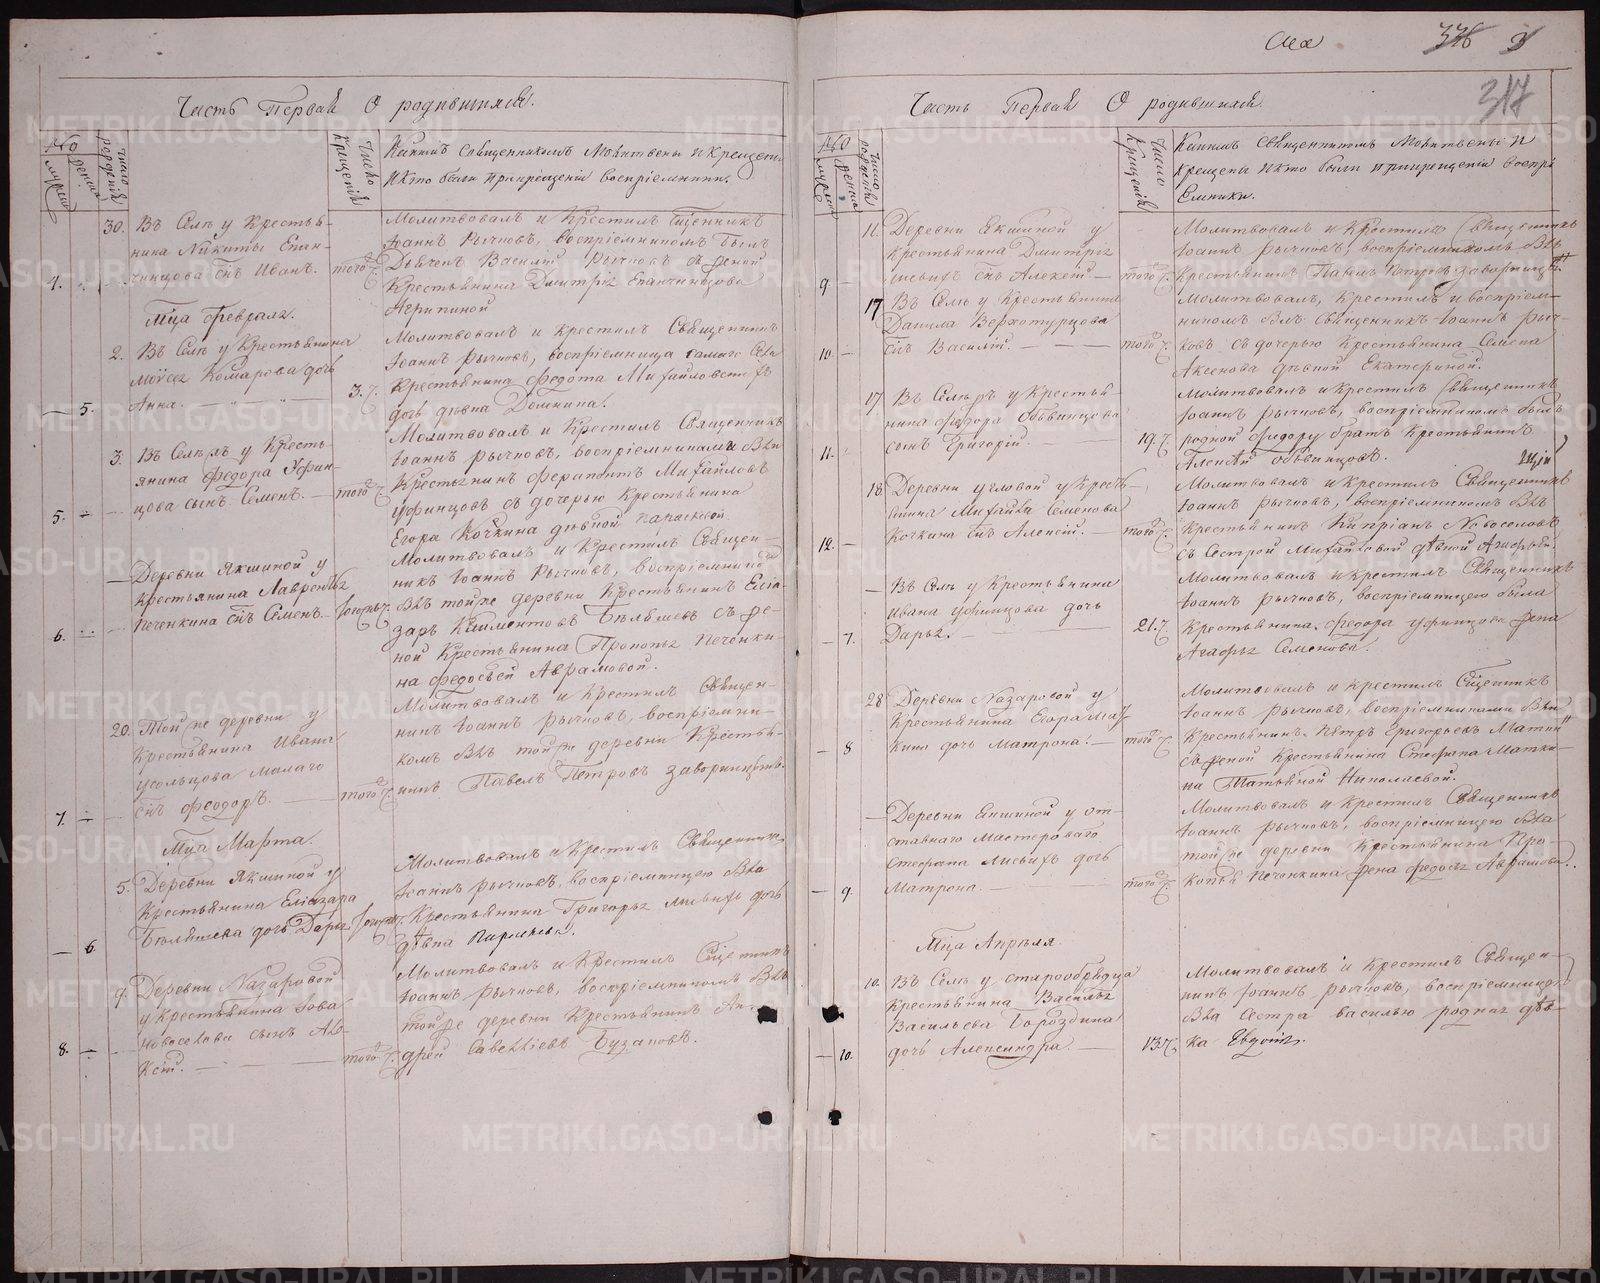 Часть Первая О родившихся.
№
мужска
женска
число рожденія
Число Крещенія
Какимъ Священникомъ Молитвены и Крещены
и Кто были при крещеніи воспріемники.
30. Въ Селѣ у Крестья-
нина Никиты Епан-
чинцова Снъ Иванъ.
4.
того ч.
Молитвовалъ и Крестилъ Сщенникъ
Іоаннъ Рычковъ, воспріемникомъ былъ
Василій Рычковъ съ женой
Крестьянина Дмитрія Епанчинцова
Агрипиной
Мца Февраля.
2. Въ Селѣ у Крестьянина
Моѵсея Комарова дочь
Анна.
5.
3. ч.
Молитвовалъ и крестилъ Священникъ
Іоаннъ Рычковъ, воспріемница тамаго Села
Крестьянина Федота Михайловскихъ
дочь дѣвка Домнина.
3. Въ Селѣ у Кресть-
янина Федора Уфин-
цова сынъ Семенъ.
5.
того ч.
Молитвовалъ и Крестилъ Священникъ
Іоаннъ Рычковъ, воспріемниками Были
Крестьянинъ Ферапонтъ Михайловъ
Уфинцовъ съ дочерью Крестьянина
Егора Кочкина дѣвкой Параскевой
Деревни Якшиной у
Крестьянина Лаврентья
Печенкина Снъ Семенъ
6.
того ч.
Молитвовалъ и Крестилъ Священ-
никъ Іоаннъ Рычковъ, воспріемникомъ
Былъ той же деревни Крестьянинъ Елеа-
заръ Климентовъ Бѣляшевъ съ же-
ной Крестьянина Прокопья Печенки-
на Федосьей Аврамовой.
20. Той же деревни у
Крестьянина Ивана
Усольцова Малаго
Снъ Феодоръ.
7.
того ч.
Молитвовалъ и Крестилъ Священ-
никъ Іоаннъ Рычковъ, воспріемни-
комъ Былъ той же деревни Крестья-
нинъ Павелъ Петровъ Заворницынъ.
Мца Марта.
5. Деревни Якшиной у
Крестьянина Еліазара
Бѣляшева дочь Дарья
6.
Молитвовалъ и Крестилъ Священникъ
Іоаннъ Рычковъ, воспріемницею Была
Крестьянина Григорья Лисьихъ дочь
дѣвка
9. Деревни Назаровой
у Крестьянина Іова
Новоселова сынъ Але-
ксій.
8.
того ч.
Молитвовалъ и Крестилъ Сщенникъ
Іоаннъ Рычковъ, воспріемникомъ Былъ
той же деревни Крестьянинъ Ан-
дрей Савельевъ Бузановъ.
346 3
317
Часть Первая О родившихся.
№
мужска
женска
число рожденія
Число Крещенія
Какимъ Священникомъ Молитвены и
Крещены и Кто были при крещеніи Воспрі-
емники.
11. Деревни Екшиной у
Крестьянина Дмитрія
Лисьихъ снъ Алексій
9
того ч.
Молитвовалъ и Крестилъ Священникъ
Іоаннъ Рычковъ, воспріемникомъ Былъ
Крестьянинъ Павелъ Петровъ Заворницынъ.
17 Въ Селѣ у Крестьянина
Данила Верхотурцова
снъ Василій.
10.
того ч.
Молитвовалъ, Крестилъ и воспріем-
никомъ Былъ Священникъ Іоаннъ Рыч-
ковъ съ дочерью Крестьянина Семена
Аксенова дѣвкой Екатериной.
17. Въ Селѣ у Крестья-
нина Федора Обвинцова
сынъ Григорій.
11.
19. ч.
Молитвовалъ и Крестилъ Священникъ
Іоаннъ Рычковъ, воспріемникомъ былъ
родной Федору братъ Крестьянинъ
Алексѣй Обвинцовъ.
18. Деревни Угловой у Кресть-
янина Михайла Семенова
Кочкина снъ Алексій.
12.
того ч.
Молитвовалъ и Крестилъ Священникъ
Іоаннъ Рычковъ, воспріемникомъ Былъ
Крестьянинъ Кипріанъ Новоселовъ
съ Сестрой Михайловой дѣвкой Агафьей.
Въ Селѣ у Крестьянина
Ивана Уфинцова дочь
Дарья.
7.
21. ч.
Молитвовалъ и Крестилъ Священникъ
Іоаннъ Рычковъ, воспріемницею была
Крестьянина Федора Уфинцова жена
Агафья Семенова.
28 Деревни Назаровой у
Крестьянина Егора Мат-
кина дочь Матрона.
8
того ч.
Молитвовалъ и крестилъ Сщенникъ
Іоаннъ Рычковъ, воспріемниками Были
Крестьянинъ Петръ Григорьевъ Маткинъ
съ женой Крестьянина Стефана Матки-
на Татьяной Николаевой.
Деревни Екшиной у от-
ставнаго мастероваго
Стефана Лисьихъ дочь
Матрона.
9.
того ч.
Молитвовалъ и Крестилъ Священникъ
Іоаннъ Рычковъ, воспріемницею Была
той же деревни Крестьянина Про-
копья Печонкина жена Федосья Аврамова.
Мца Апрѣля
10. Въ Селѣ у старообрядца
Крестьянина Василья
Васильева Бороздина
дочь Александра
10.
13. ч.
Молитвовалъ и Крестилъ Священ-
никъ Іоаннъ Рычковъ, воспріемницею
Была Сестра Василью родная дѣв-
ка Евдокія.
METRIKI.GASO-URAL.RU